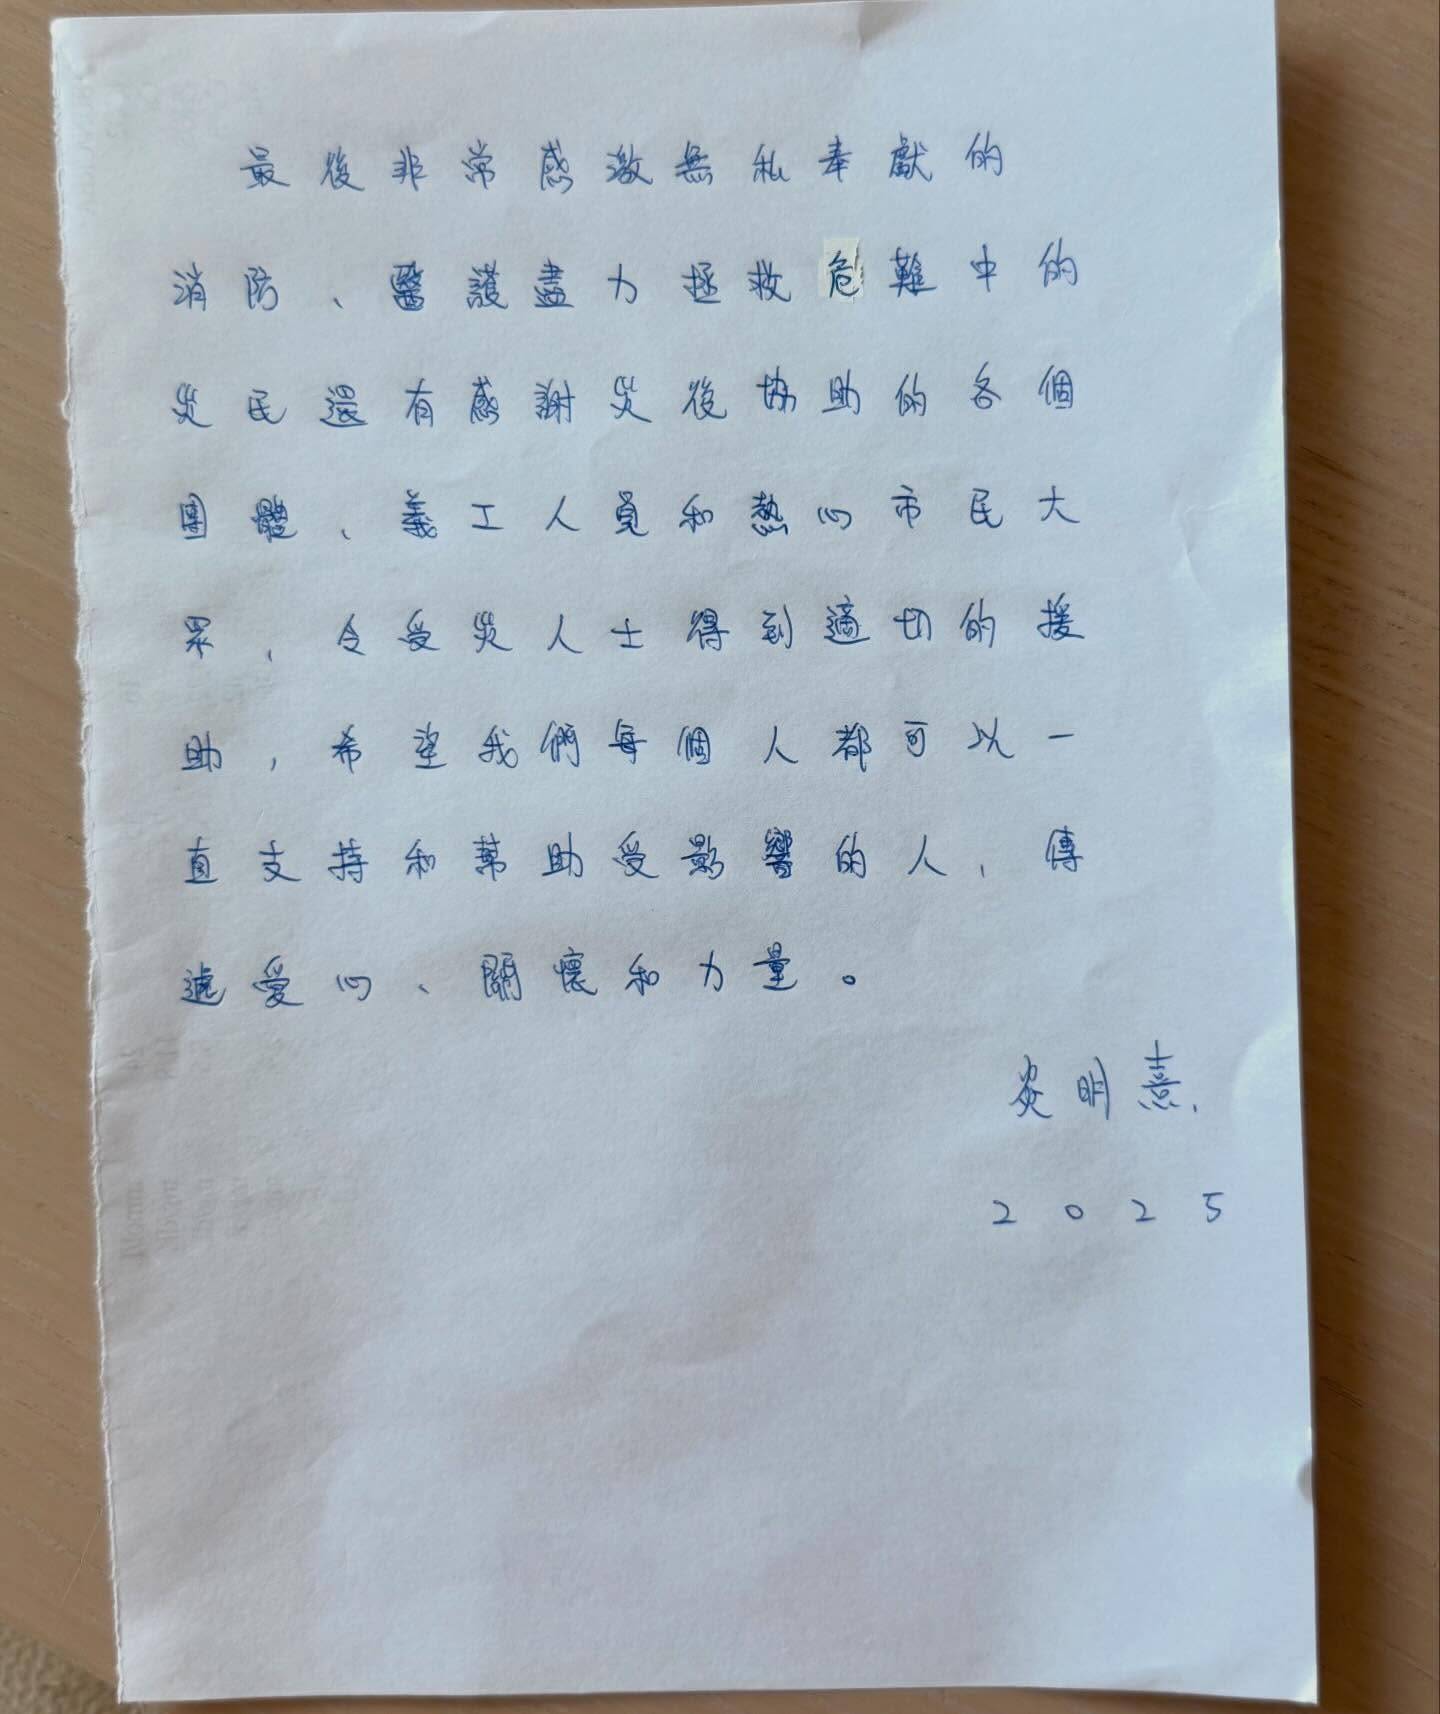 最後非常感激無私奉獻的
消防、醫護盡力拯救危難中的
災民還有感謝災後協助的各個
團體、義工人員和熱心市民大
眾，令受災人士得到適切的援
助，希望我們每個人都可以一
直支持和幫助受影響的人，傳
遞愛心、關懷和力量。
炎明熹.
2025